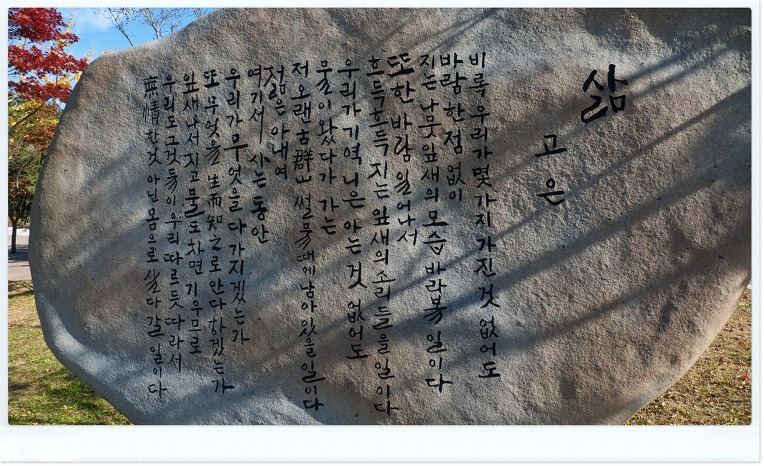 삶
고 은
비록 우리가 몇 가지 가진 것 없어도
바람 한 점 없이
지는 나뭇잎새의 모습 바라볼 일이다
또한 바람 일어나서
흐득흐득 지는 잎새의 소리 들을 일이다
우리가 기역 니은 아는 것 없어도
물이 왔다가 가는
저 오랜 古群山 썰물때에 남아 있을 일이다
젊은 아내여
여기서 사는 동안
우리가 무엇을 다 가지겠는가
또 무엇을 生而知之로 안다 하겠는가
잎새 나서 지고 물도 차면 기우므로
우리도 그것들이 우리 따르듯 따라서
無情한 것 아닌 몸으로 살다 갈 일이다